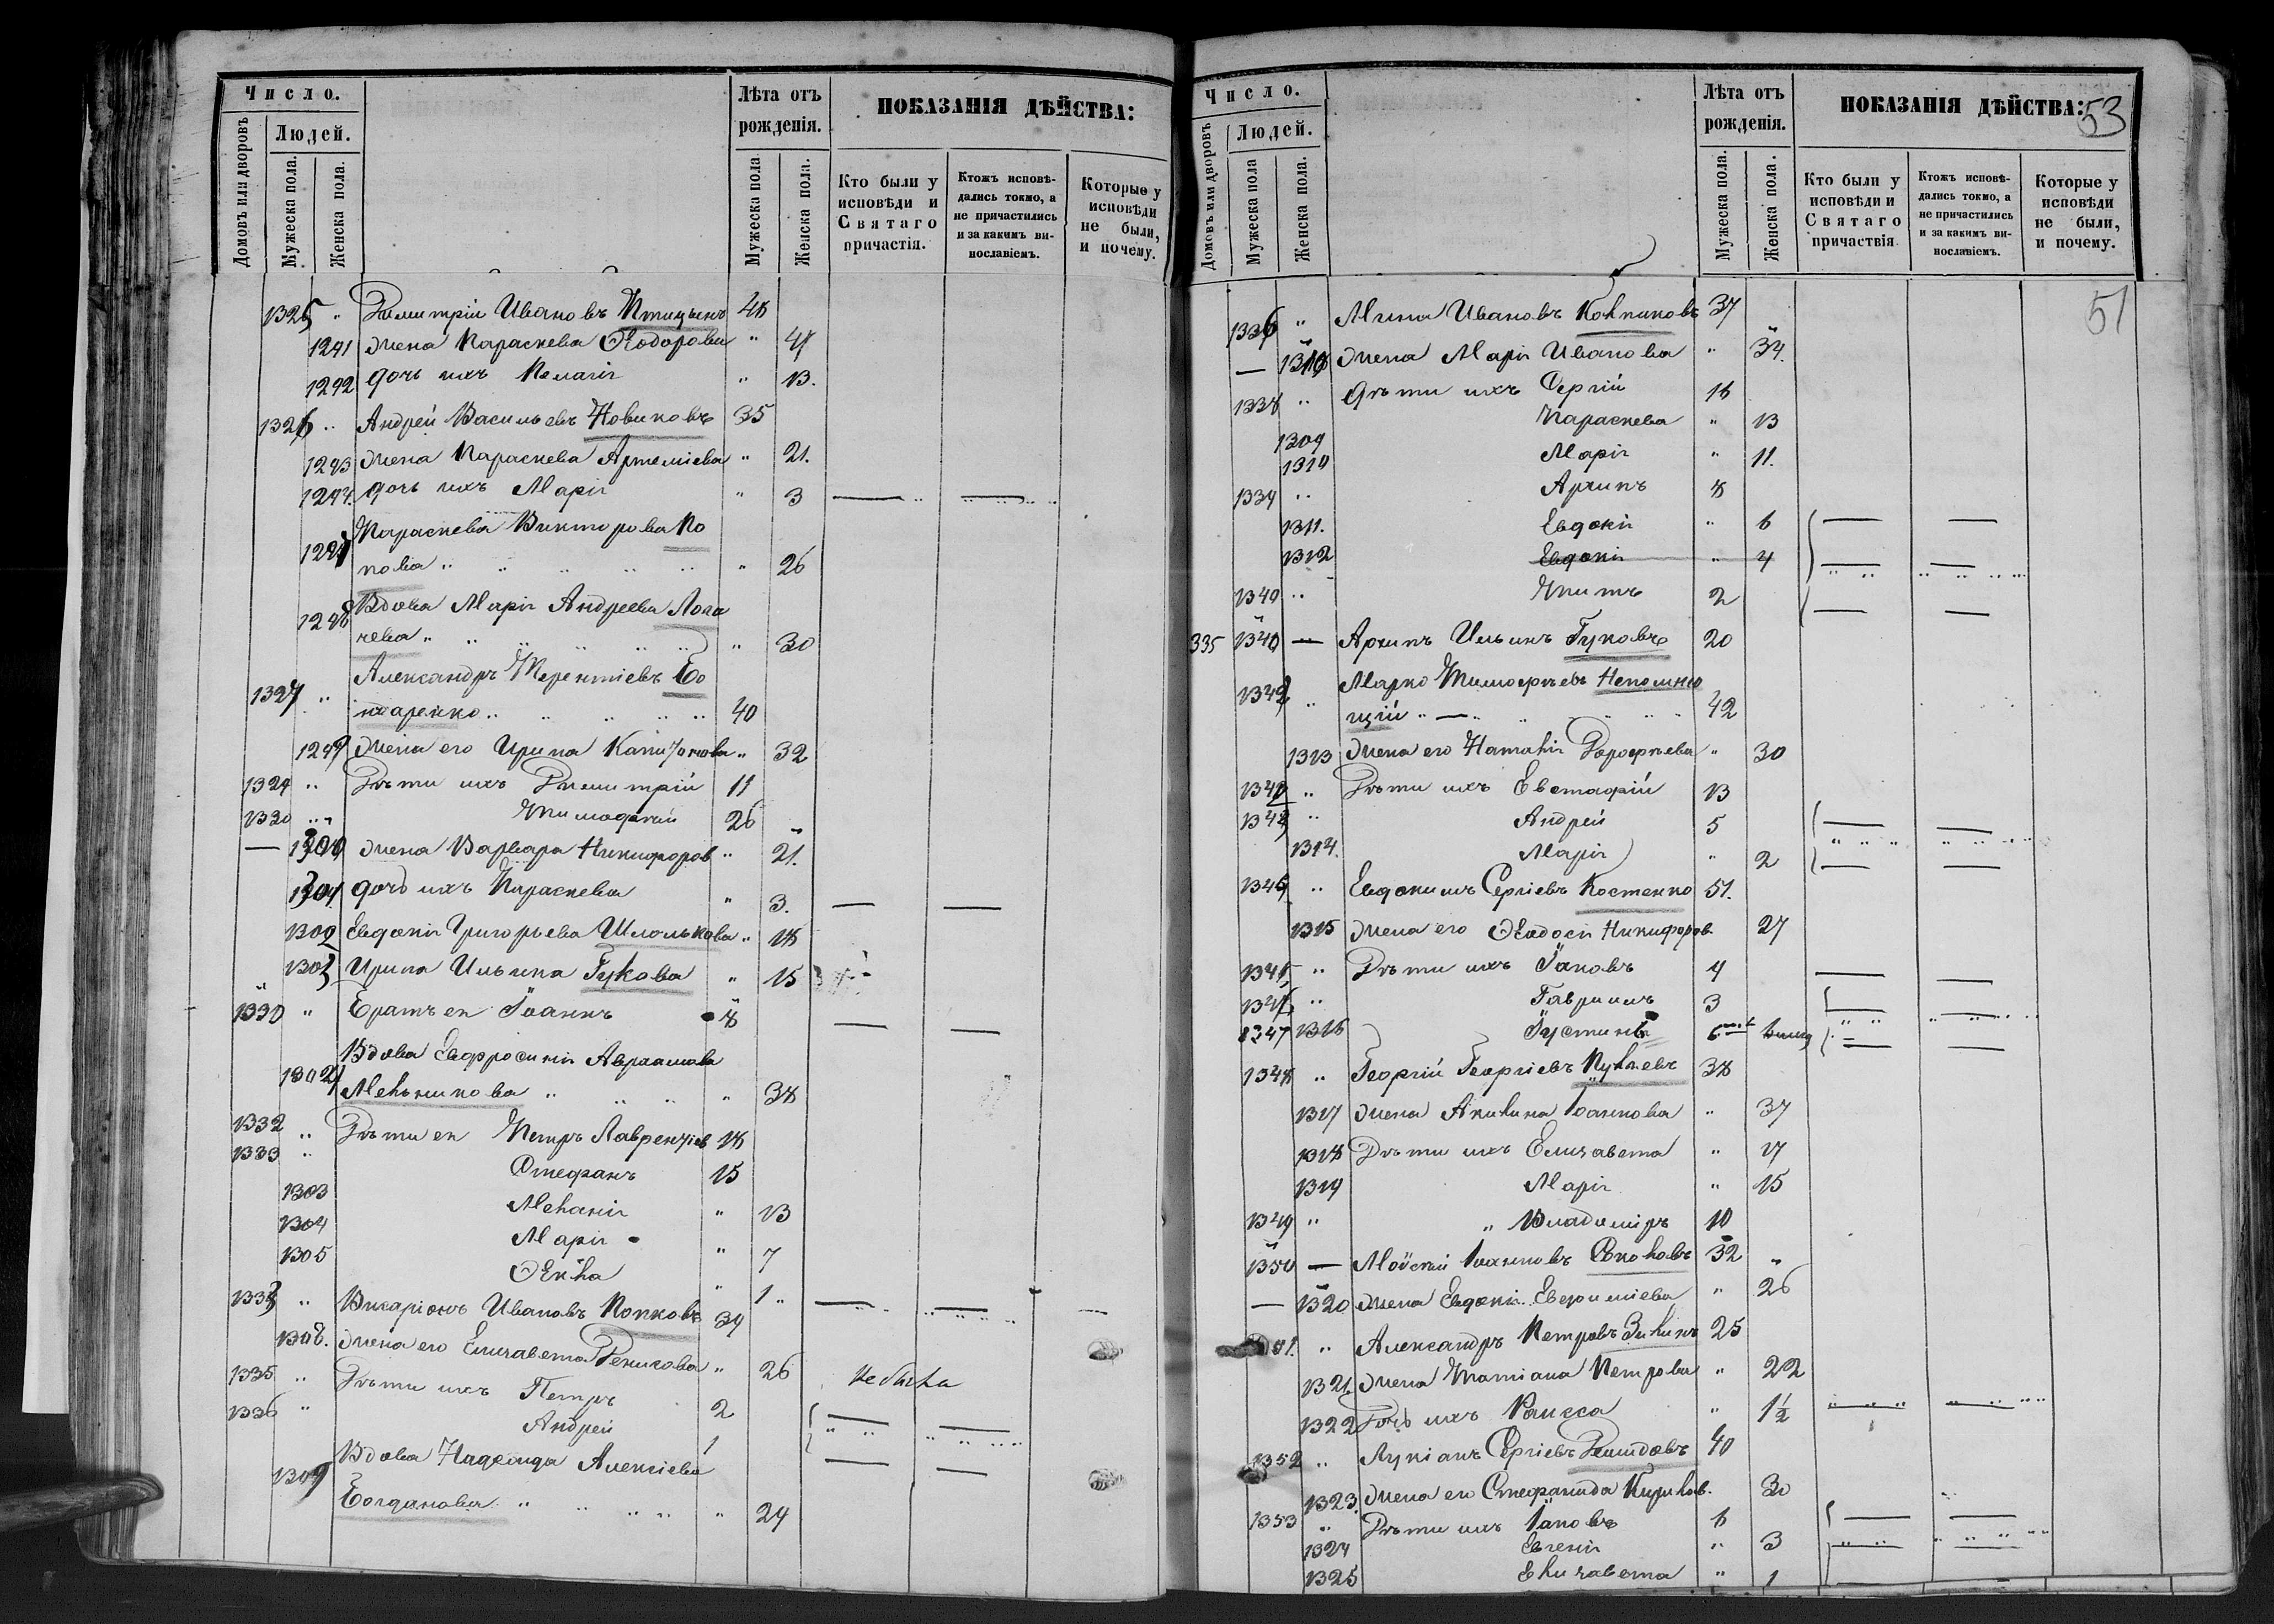 Число.
Лѣта отъ рожденія.
ПОКАЗАНІЯ ДѢЙСТВА:
Домовъ или дворовъ
Людей.
Мужеска пола.
Женска пола.
Мужеска пола
Женска пола.
Кто были у исповѣди и Святаго причастія.
Ктожъ исповѣ-дались токмо, а не причастились и за какимъ ви-нословіемъ.
Которые у исповѣди не были, и почему.
1325 " Димитрій Ивановъ Птицынъ 48
жена Параскева Ѳеодорова "
1292 дочь ихъ Пелагія " 13.
1326 " Андрей Васильевъ Новиковъ 35
1293 жена Параскева Артеміева " 21.
1294. дочь ихъ Марія " 3
Параскева Викторова По
пова " " 26
Вдова Марія Андреева Лога
чева " " 30
Александръ Терентіевъ Бо
1327 " 40
жена его Ирина " 32
1329 " Дѣти ихъ Димитрій 11
1330 " Тимофей 26
— жена Варвара Никифоров " 21.
дочь ихъ Параскева " 3.
Евдокія Григорьева " 18
Ирина Ильина Гукова " 15
1330 " Братъ ея Іоаннъ 8
Вдова Евфросинія Авраамова
Мельникова " " 38
1332 " Дѣти ея Петръ Лаврентіев 18
1333 " Стефанъ 15
1303 Меланія " 13
1304 Марія " 7
1305 Ѳекла " 1
" Виссаріонъ Ивановъ Попковъ 39
жена его Елисавета Денисова " 26 не была
1335 " Дѣти ихъ Петръ 2
1336 " Андрей 1
Вдова Надежда Алексіева
1309 Богданова " " 24
Число.
Лѣта отъ рожденія.
ПОКАЗАНІЯ ДѢЙСТВА:
53
Домовъ или дворовъ
Людей.
Мужеска пола
Женска пола.
Мужеска пола.
Женска пола.
Кто были у исповѣди и Святаго причастія
Ктожъ исповѣ-дались токмо, а не причастились и за какимъ ви-нословіемъ.
Которые у исповѣди не были, и почему.
51
1336 " Мина Ивановъ 37
— жена Марія Иванова " 34.
1338 " Дѣти ихъ Сергій 16
1309 Параскева " 13
1310 Марія " 11.
1339 " Архипъ 8
1311. Евдокія " 6
1312 Евдокія " 4
1340 " Титъ 2
335 1340 — Архипъ Ильинъ Гуковъ 20
Марко Тимофеевъ Непомня
щій " 42
1313 жена его Наталія Дорофеева " 30
" Дѣти ихъ Евстафій 13
" Андрей 5
1314. Марія " 2
" Евдокимъ Сергіевъ Костенко 51.
1315 жена его Ѳеодосія Никифоров. 27
1345 " Дѣти ихъ Іаковъ 4
1346 " Гавріилъ 3
1347 1316 Іустинъ
1348 " Георгій Георгіевъ 38
1317 жена Акилина Іоаннова " 37
1318 Дѣти ихъ Елисавета " 17
1319 Марія " 15
1349 " " Владиміръ 10
1350 — Моисей Іоанновъ Соколовъ 32 "
— 1320 жена Евдокія Евфиміева " 26
51. " Александръ Петровъ Зилинъ 25
1321 жена Татіана Петрова " 22
1322 Дочь ихъ Раисса " 1½
1352 " Лукіанъ Сергіевъ 40
1323. жена его Стефанида Кирилов. 30
1353 " Дѣти ихъ Іаковъ 6
1324 Евгенія " 3
1325 Елисавета " 1